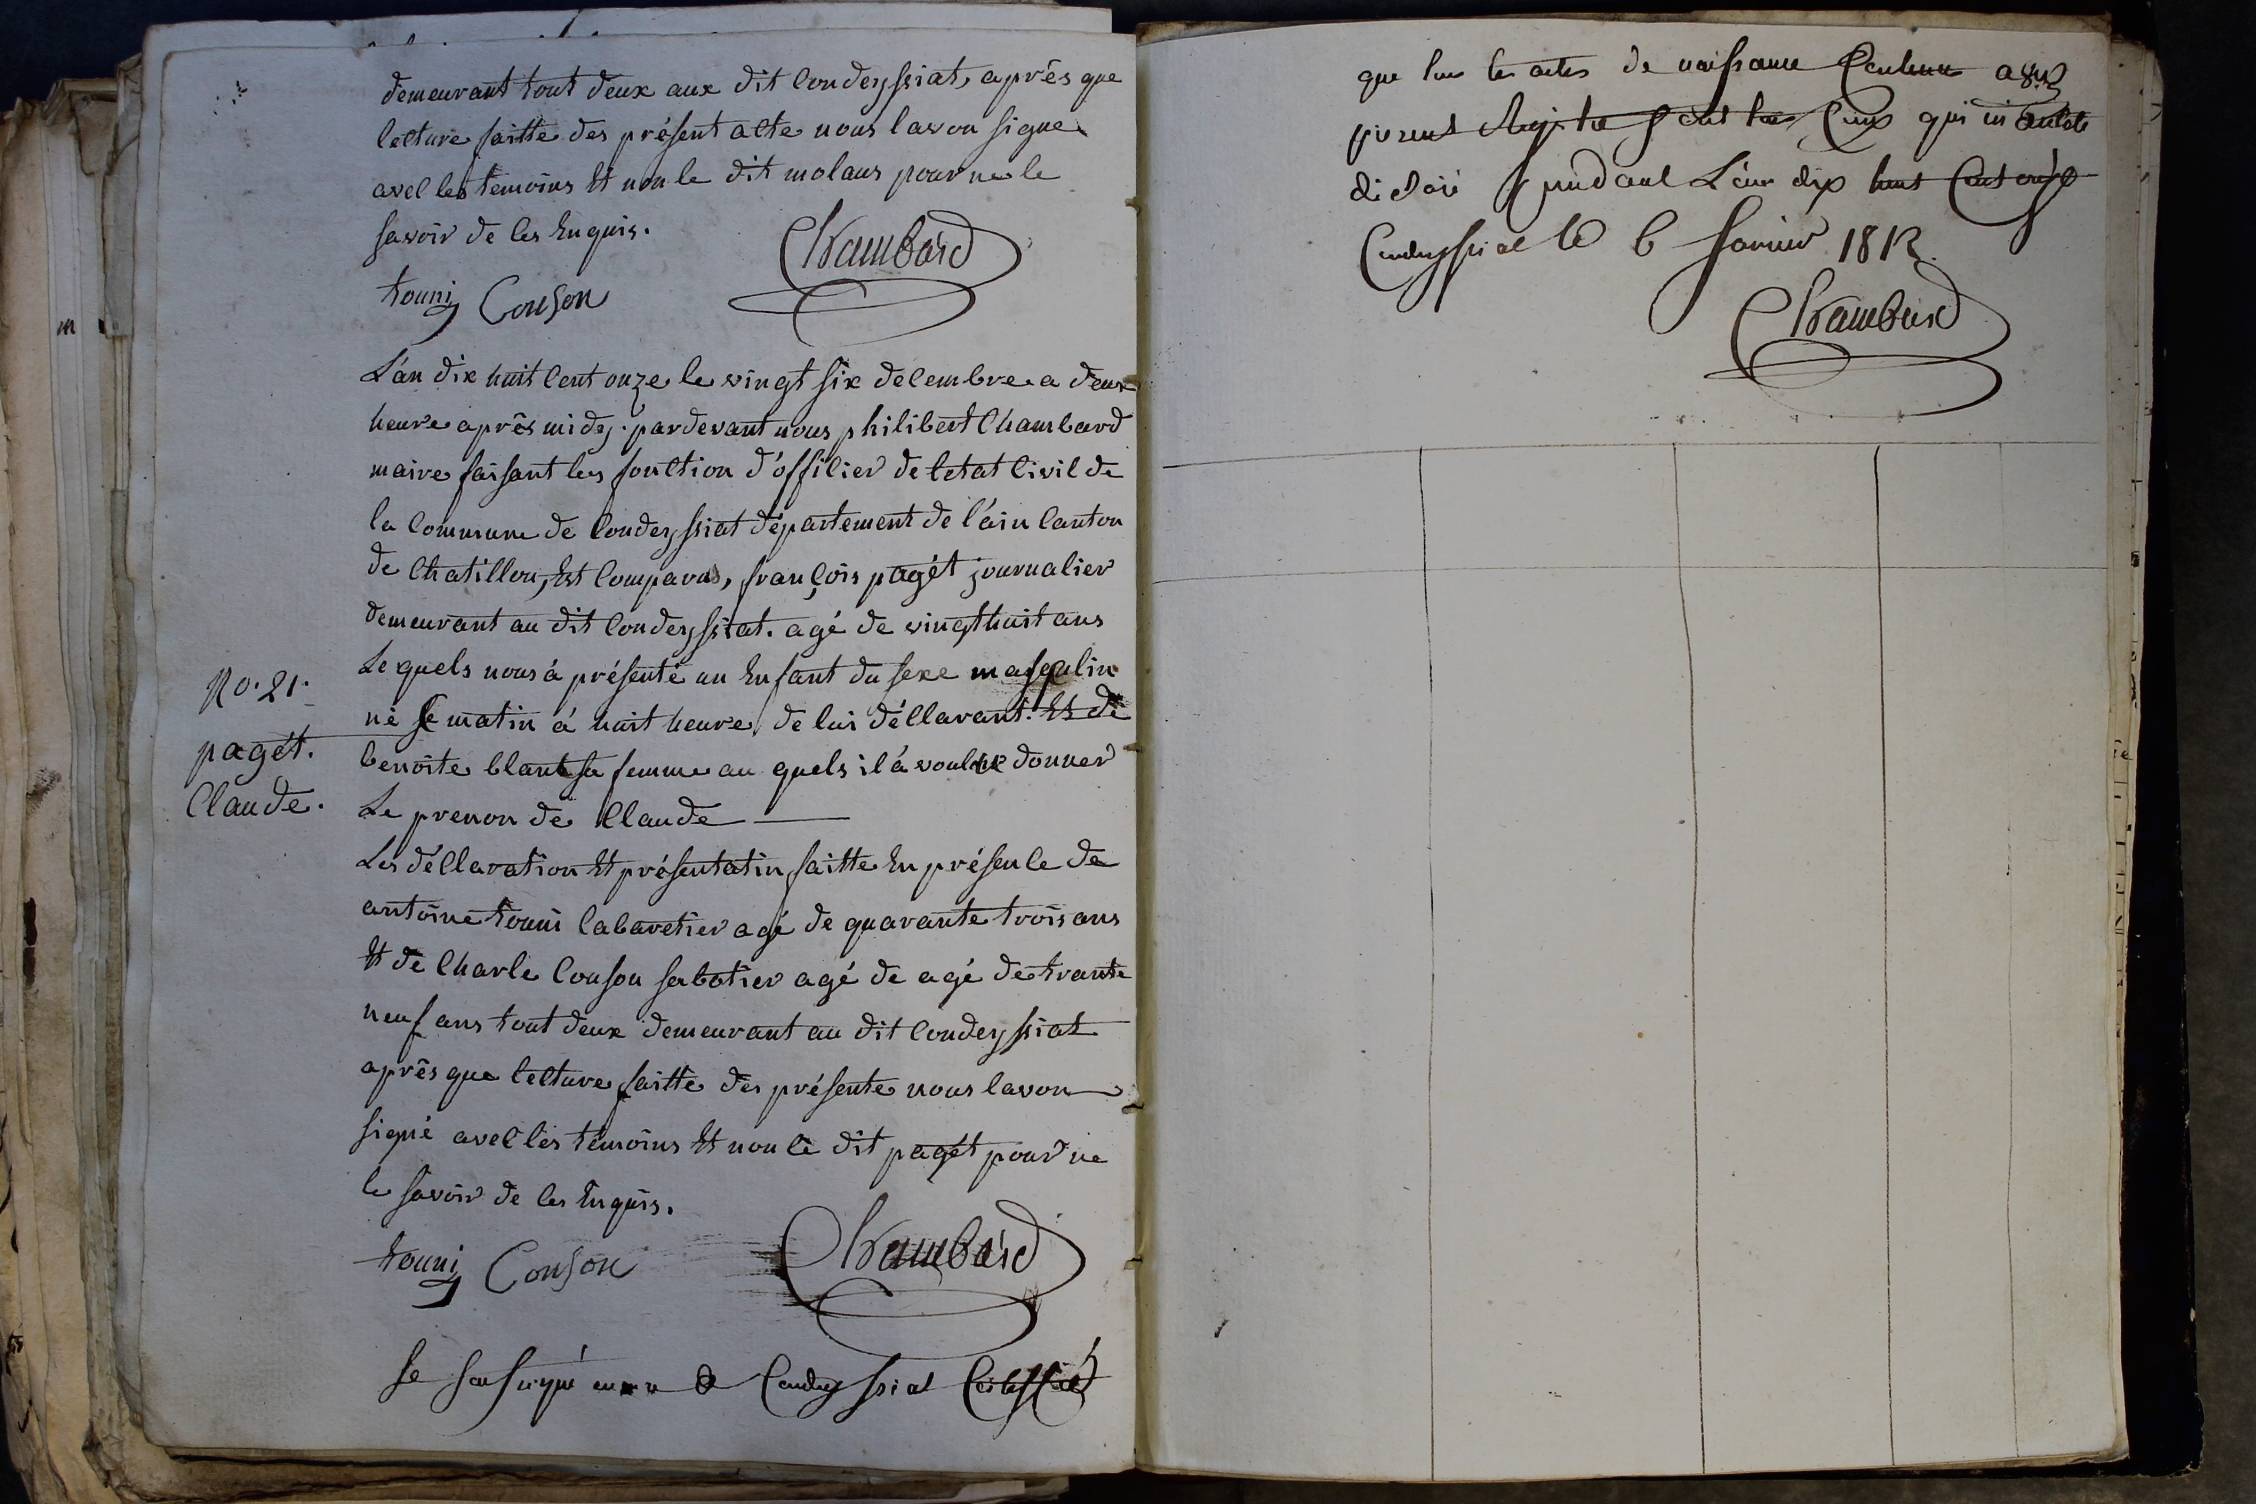 demeurant tout deux aux dit Condeyssiat, après que
lecture faitte des présent acte nous lavon signe
avec les temoins Et non le dit molans pour ne le
savoir de ces Enquis.
touni Conson Chambard
L'an dix huit cent onze le vingt six decembre a deux
heure après midy. pardevant nous philibert Chambard
maire faisant les fonction d'officier de letat Civil de
la Commune de Condeyssiat département de l'áin Canton
de Chatillon, Est Comparus, françois pagét journalier
demeurant au dit Condeyssiat. agé de vingt huit ans
Lequels nous à présenté un Enfant du sexe masqulin
né se matin á huit heure de lui déclarant. Et de
benoite blanc sa femme au quels il á voulue donner
Le prenon de Claude
No. 21.
pagét.
Claude.
Les déclaration Et présentatin faitte En présence de
antoine touni Cabaretier agé de quarante trois ans
Et de Charle Conson sabotier agé de agé de trante
neuf ans tout deux demeurant au dit Condeyssiat
après que lecture faitte des présente nous lavon
signé avec les témoins Et non le dit pagét pour ne
le savoir de ces Enquis.
touni Conson Chambard
Le soussigné maire de Condeyssiat Certifié
que tous les actes de naissance Contenus au
présent Registre sont tous Ceux qui m'ont été
déclaré pendant L'an dix huit Cent onze
Condeyssiat le 6 Janvier 1812.
Chambard